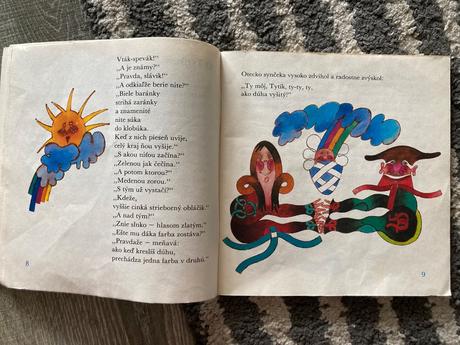 Vták-spevák!“
„A je známy?“
„Pravda, slávik!“
„A odkiaľže berie nite?“
„Biele baránky
strihá zaránky
a znamenité
nite súka
do klobúka.
Keď z nich pieseň uvije,
celý kraj ňou vyšije.“
„S akou niťou začína?“
„Zelenou jak čečina.“
„A potom ktorou?“
„Medenou zorou.“
„S tým už vystačí?“
„Kdeže,
vyššie cinká strieborný obláčik.“
„A nad tým?“
„Znie slnko – hlasom zlatým.“
„Ešte mu dáka farba zostáva?“
„Pravdaže – meňavá:
ako keď kreslíš dúhu,
prechádza jedna farba v druhú.“
8
Otecko synčeka vysoko zdvihol a radostne zvýskol:
„Ty môj, Tytik, ty-ty, ty,
ako dúha vyšitý!“
9